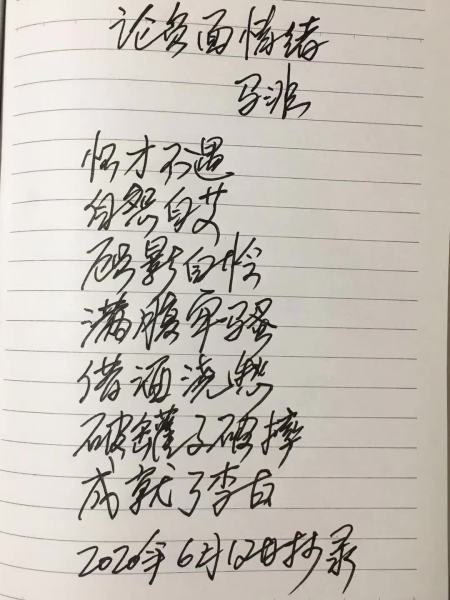 论负面情绪
马非
怀才不遇
自怨自艾
顾影自怜
满腹牢骚
借酒浇愁
破罐子破摔
成就了李白
2020年6月12日抄录